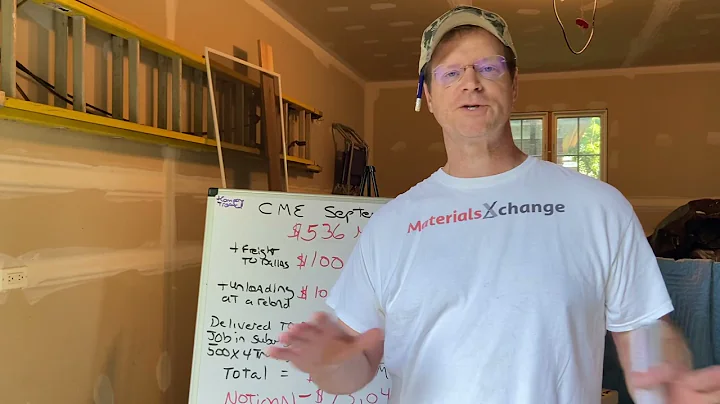 CME Septe
$536
+ Freight
To Dallas
$100
+ unloading
at a reload
$10
Delivered To
Job in subu
500 X 4 T
Total =
M
$73,04
MaterialsXchange